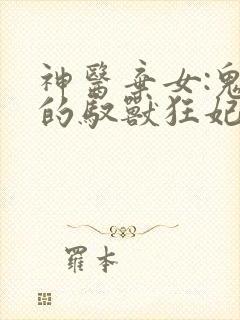 神醫棄女:鬼
的馭獸狂妃
羅本